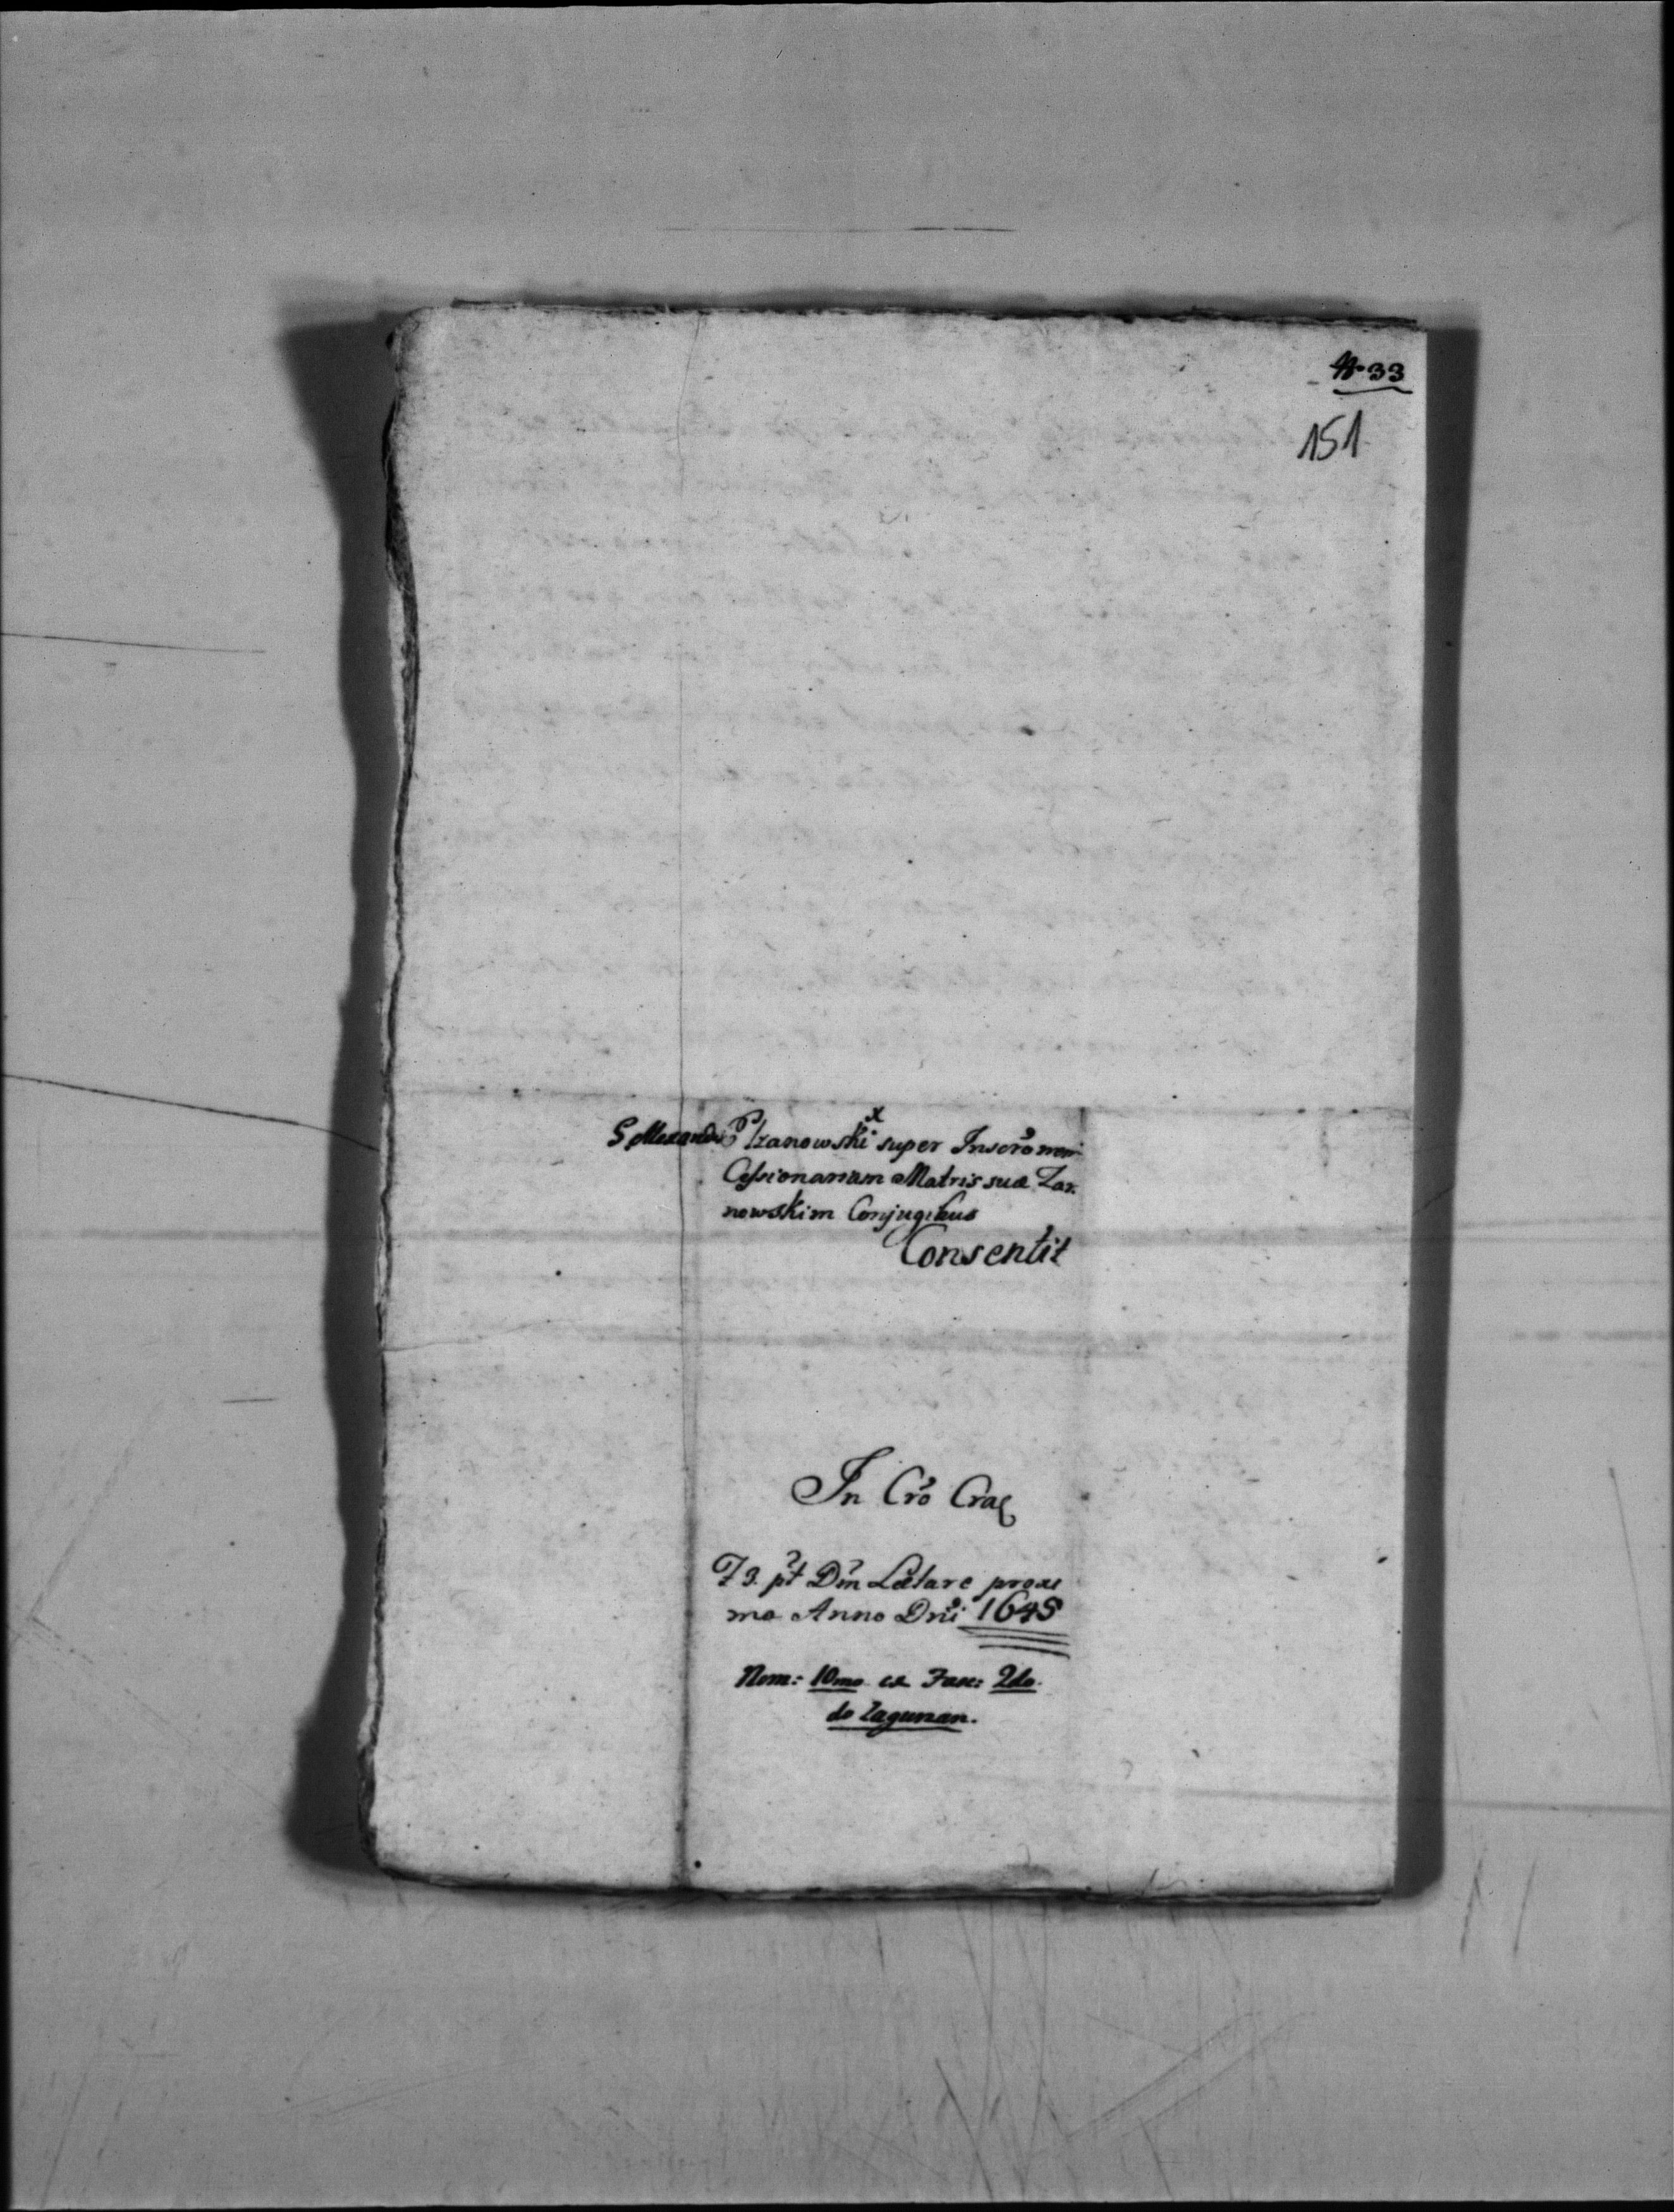 N. 33
151
G Alexander Pżanowski super Inscrõnem
Cessionariam Matris suæ Zar-
nowskim Conjugibus
Consentit
In Crõ Crac
F 3. pt Dm̃ Lætare proxi
ma Anno Dni 1645
Nom: 10mo ex Fasc: 2do.
do Zagurzan.